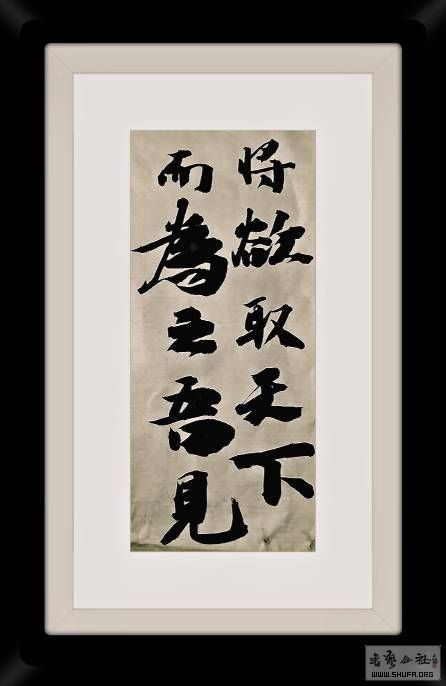 将欲取天下
而為之吾見
書艺公社
WWW.SHUFA.ORG